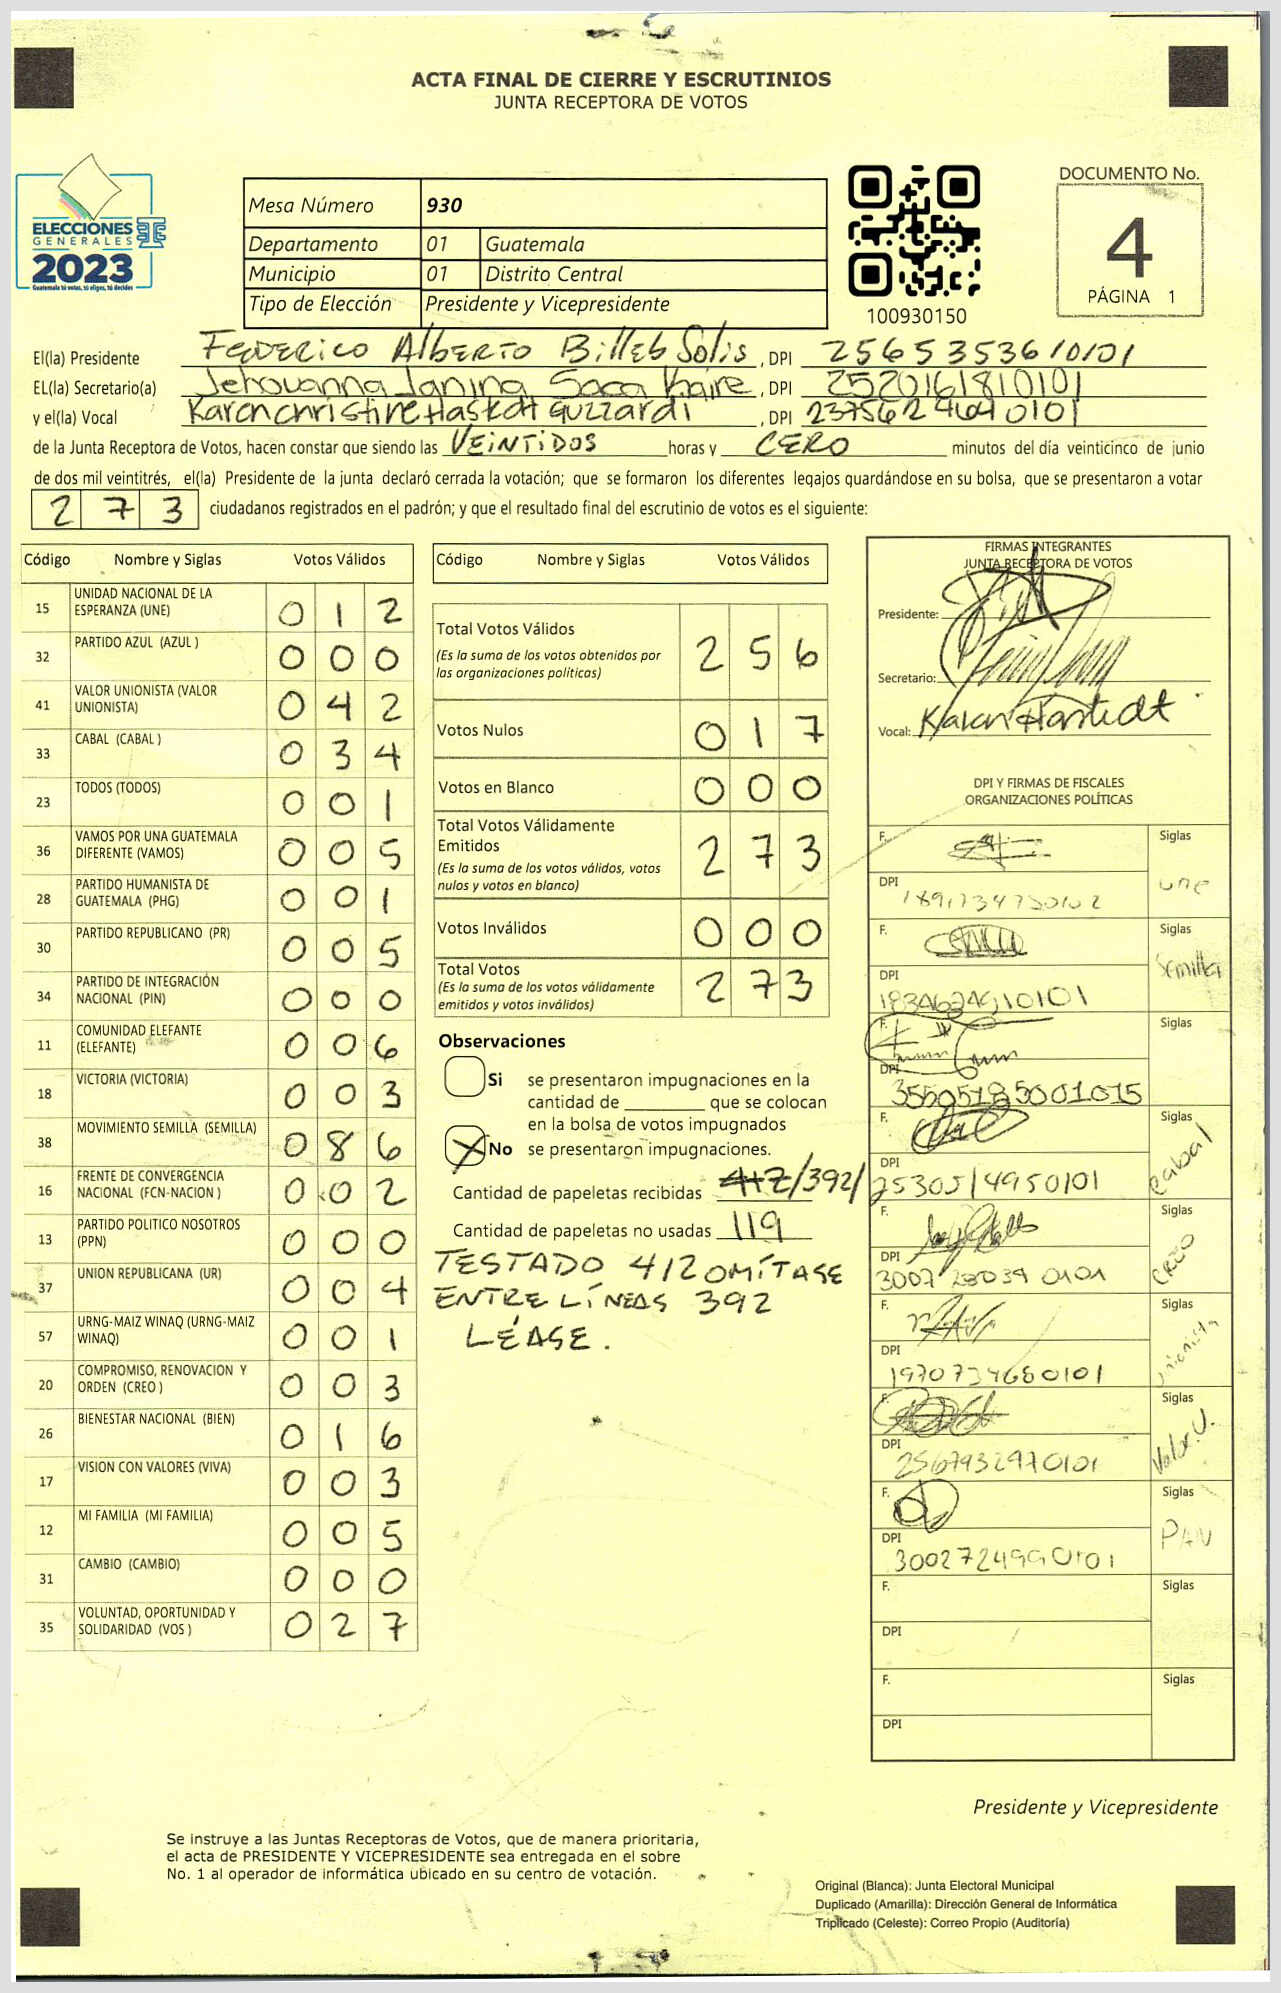 ACTA FINAL DE CIERRE Y ESCRUTINIOS
JUNTA RECEPTORA DE VOTOS
ELECCIONES
GENERALES
2023
Guatemala tú votas, tú eliges, tú decides
Mesa Número 930
Departamento 01 Guatemala
Municipio 01 Distrito Central
Tipo de Elección Presidente y Vicepresidente
100930150
DOCUMENTO No.
4
PÁGINA 1
El(la) Presidente Federico Alberto Billeb Solis, DPI 2565353610101
EL(la) Secretario(a) Jehovanna Janina Saca, DPI 2520161810101
y el(la) Vocal Karen Christine Hastedt Guzzardi, DPI
de la Junta Receptora de Votos, hacen constar que siendo las VEINTIDOS horas y CERO minutos del día veinticinco de junio
de dos mil veintitrés, el(la) Presidente de la junta declaró cerrada la votación; que se formaron los diferentes legajos guardándose en su bolsa, que se presentaron a votar
2 7 3 ciudadanos registrados en el padrón; y que el resultado final del escrutinio de votos es el siguiente:
Código Nombre y Siglas Votos Válidos
15 UNIDAD NACIONAL DE LA
ESPERANZA (UNE) 0 1 2
32 PARTIDO AZUL (AZUL ) 0 0 0
41 VALOR UNIONISTA (VALOR
UNIONISTA) 0 4 2
33 CABAL (CABAL ) 0 3 4
23 TODOS (TODOS) 0 0 1
36 VAMOS POR UNA GUATEMALA
DIFERENTE (VAMOS) 0 0 5
28 PARTIDO HUMANISTA DE
GUATEMALA (PHG) 0 0 1
30 PARTIDO REPUBLICANO (PR) 0 0 5
34 PARTIDO DE INTEGRACIÓN
NACIONAL (PIN) 0 0 0
11 COMUNIDAD ELEFANTE
(ELEFANTE) 0 0 6
18 VICTORIA (VICTORIA) 0 0 3
38 MOVIMIENTO SEMILLA (SEMILLA) 0 8 6
16 FRENTE DE CONVERGENCIA
NACIONAL (FCN-NACION ) 0 0 2
13 PARTIDO POLITICO NOSOTROS
(PPN) 0 0 0
37 UNION REPUBLICANA (UR) 0 0 4
57 URNG-MAIZ WINAQ (URNG-MAIZ
WINAQ) 0 0 1
20 COMPROMISO, RENOVACION Y
ORDEN (CREO ) 0 0 3
26 BIENESTAR NACIONAL (BIEN) 0 1 6
17 VISION CON VALORES (VIVA) 0 0 3
12 MI FAMILIA (MI FAMILIA) 0 0 5
31 CAMBIO (CAMBIO) 0 0 0
35 VOLUNTAD, OPORTUNIDAD Y
SOLIDARIDAD (VOS ) 0 2 7
Código Nombre y Siglas Votos Válidos
Total Votos Válidos 2 5 6
(Es la suma de los votos obtenidos por
las organizaciones políticas)
Votos Nulos 0 1 7
Votos en Blanco 0 0 0
Total Votos Válidamente
Emitidos 2 7 3
(Es la suma de los votos válidos, votos
nulos y votos en blanco)
Votos Inválidos 0 0 0
Total Votos 2 7 3
(Es la suma de los votos válidamente
emitidos y votos inválidos)
Observaciones
Si se presentaron impugnaciones en la
cantidad de ________ que se colocan
en la bolsa de votos impugnados
X No se presentaron impugnaciones.
Cantidad de papeletas recibidas 412/392/
Cantidad de papeletas no usadas 119
TESTADO 412 OMÍTASE
ENTRE LÍNEAS 392
LÉASE.
FIRMAS INTEGRANTES
JUNTA RECEPTORA DE VOTOS
Presidente:
Secretario:
Vocal: Karen Hastedt
DPI Y FIRMAS DE FISCALES
ORGANIZACIONES POLÍTICAS
F. Siglas
DPI UNE
F. Siglas
DPI 1834624910101 Semilla
F. Siglas
DPI
F. Siglas
DPI 2530514950101 Cabal
F. Siglas
DPI 3007280390101 CREO
F. Siglas
DPI 1970734680101 Unionista
F. Siglas
DPI 2567932970101 Valor. U.
F. Siglas
DPI 3002724990101 PAN
F. Siglas
DPI
F. Siglas
DPI
Presidente y Vicepresidente
Se instruye a las Juntas Receptoras de Votos, que de manera prioritaria,
el acta de PRESIDENTE Y VICEPRESIDENTE sea entregada en el sobre
No. 1 al operador de informática ubicado en su centro de votación.
Original (Blanca): Junta Electoral Municipal
Duplicado (Amarilla): Dirección General de Informática
Triplicado (Celeste): Correo Propio (Auditoría)